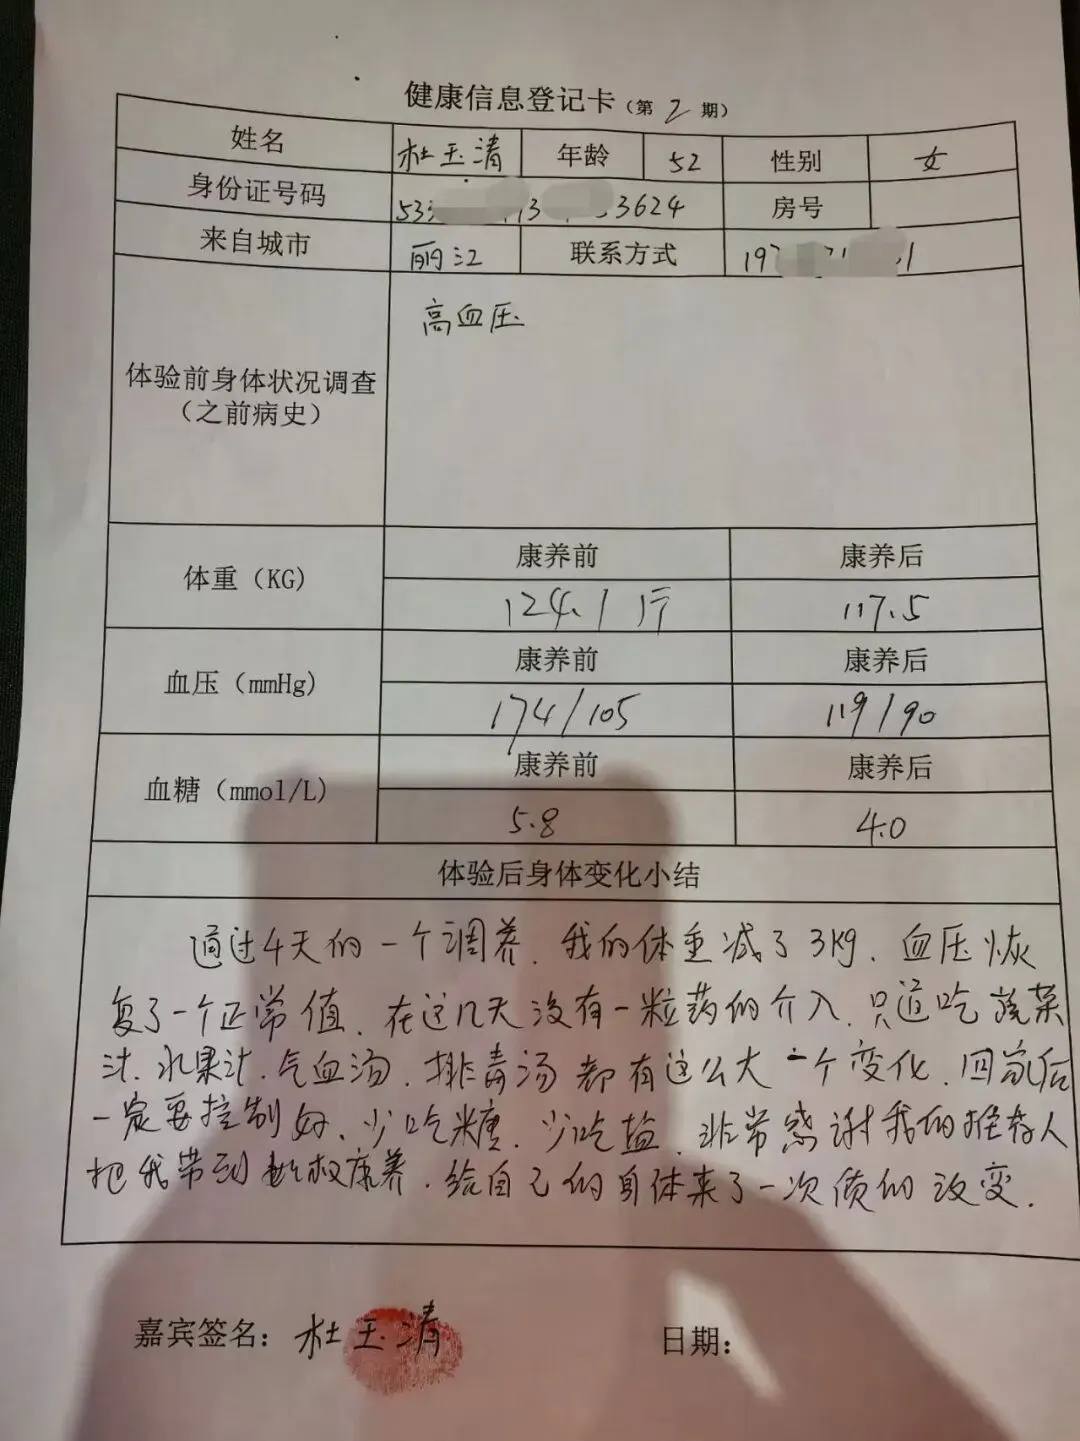 健康信息登记卡（第 2 期）
姓名 杜玉清 年龄 52 性别 女
身份证号码 3624 房号
来自城市 丽江 联系方式
体验前身体状况调查
（之前病史）
高血压
体重（KG) 康养前 康养后
124.1斤 117.5
血压（mmHg) 康养前 康养后
174/105 119/90
血糖（mmol/L) 康养前 康养后
5.8 4.0
体验后身体变化小结
通过4天的一个调养.我的体重减了3kg.血压恢
复了一个正常值.在这几天没有一粒药的介入.只道吃蔬菜
汁.水果汁.气血汤.排毒汤都有这么大一个变化.回家后
一定要控制好、少吃糖.少吃盐.非常感谢我的推荐人
把我带到康养.给自己的身体来了一次质的改变.
嘉宾签名：杜玉清 日期：